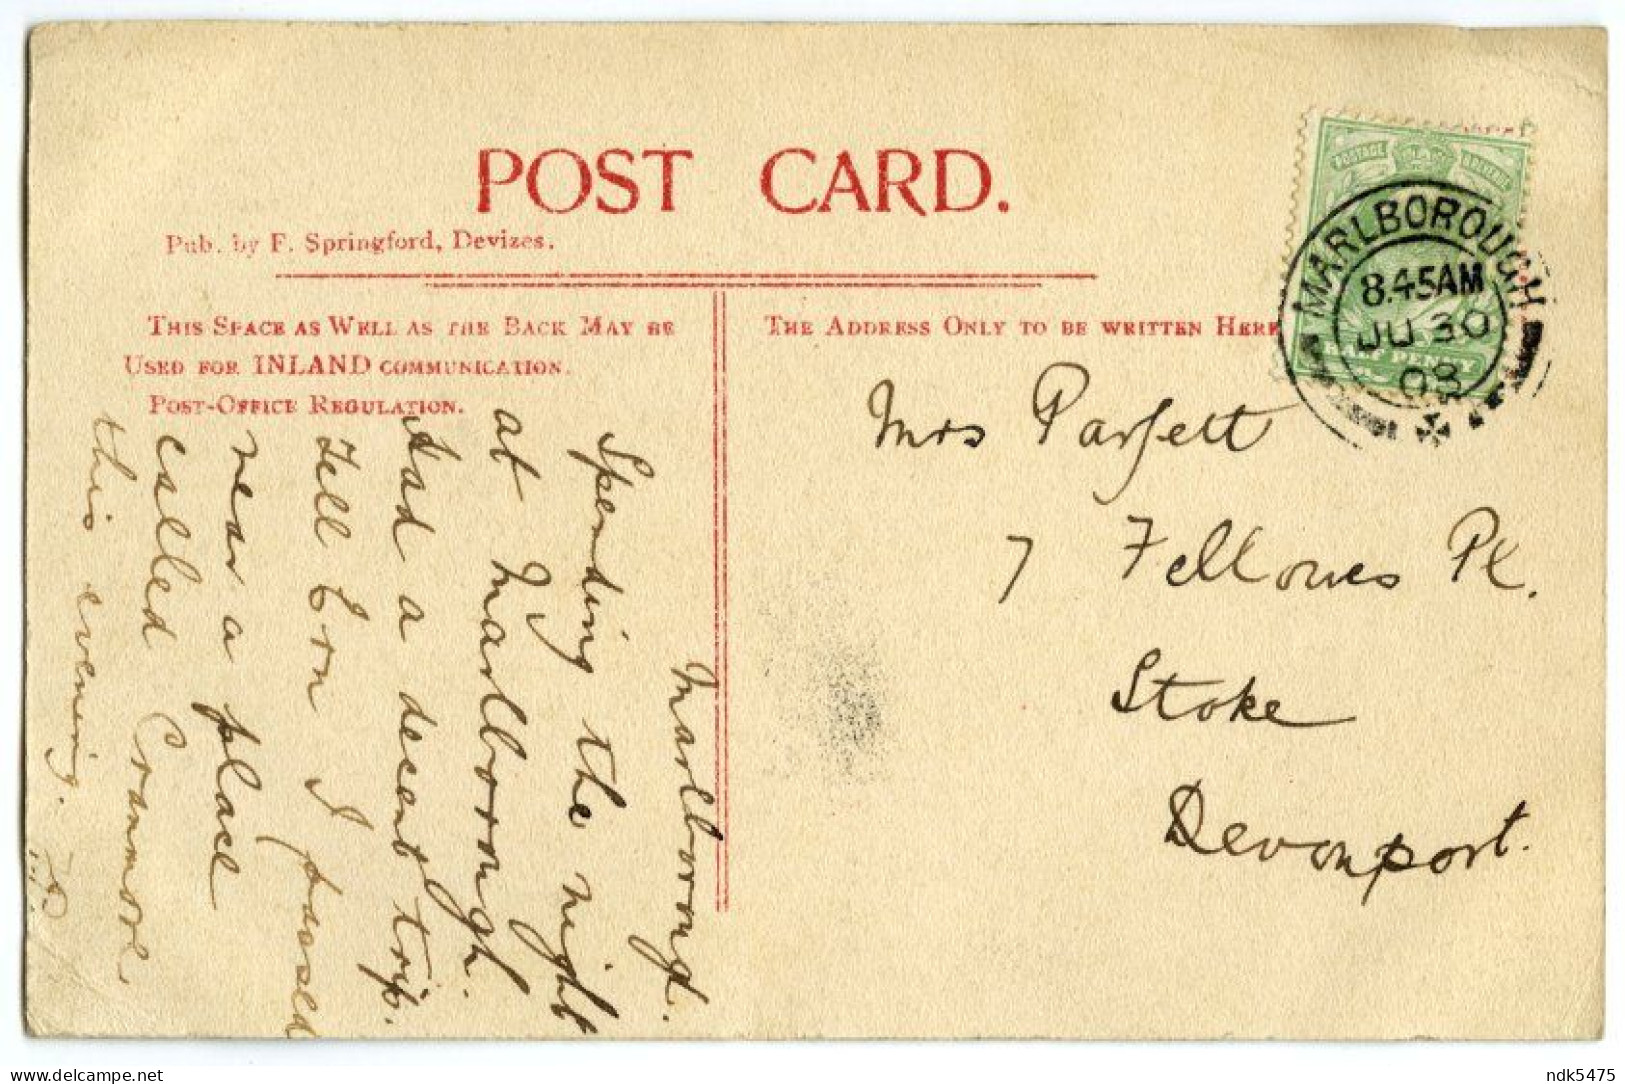 POST CARD.
Pub. by F. Springford, Devizes.
THIS SPACE AS WELL AS THE BACK MAY BE
USED FOR INLAND COMMUNICATION.
POST-OFFICE REGULATION.
THE ADDRESS ONLY TO BE WRITTEN HERE
POSTAGE REVENUE
HALFPENNY
MARLBOROUGH
8.45AM
JU 30
08
Mrs Parfett
7 Fellowes Pl.
Stoke
Devonport.
Marlborough.
Spending the night
at Marlborough.
Had a decent trip.
Tell Ern I passed
near a place
called Cranmore
this evening.
delcampe.net
ndk5475